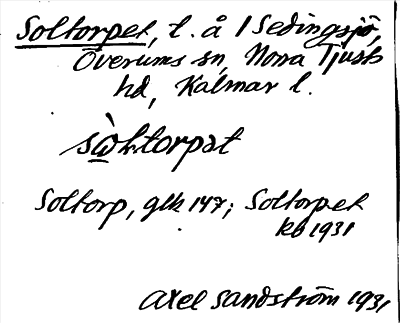 Soltorpet, t. å 1 Sedingsjö,
Överums sn, Norra Tjusts
hd, Kalmar l.
sὼltorpət
Soltorp, glk 147; Soltorpet
kb 1931
Axel Sandström 1931